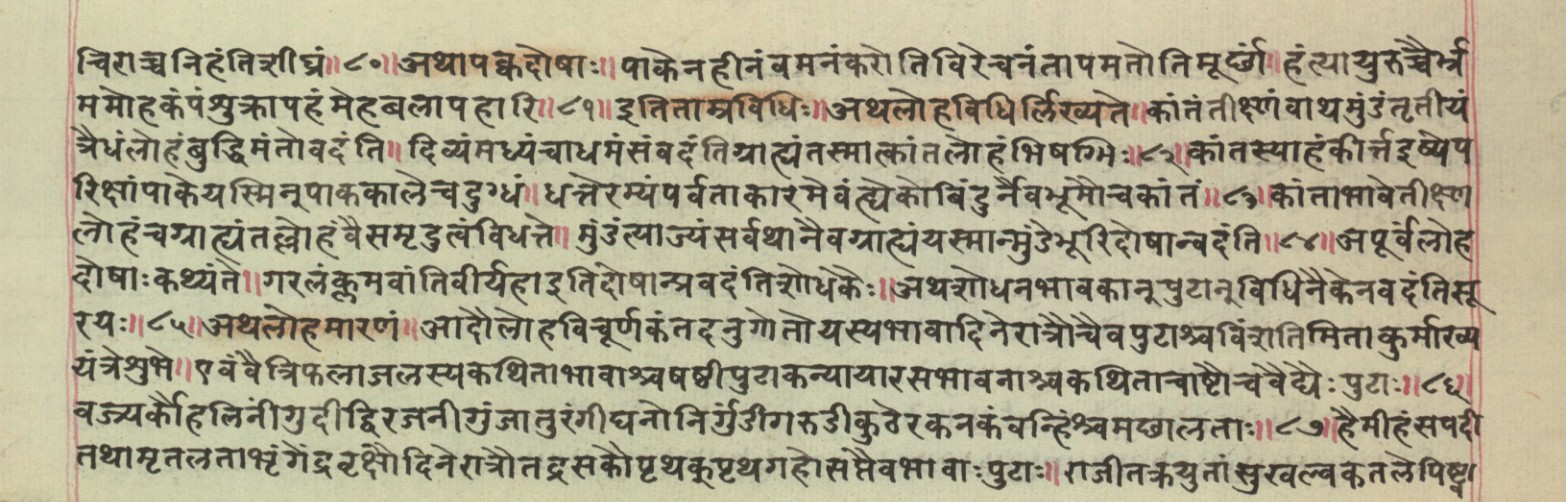 चिराच्च निहंति शीघ्रं॥८०॥ अथापक्वदोषाः॥ पाकेन हीनं वमनं करोति विरेचनं तापमतो तिमूर्छां॥ हंत्यायुरुच्चैर्भ्र
ममोहकंपं शुक्रापहं मेहबलापहारि॥८१॥ इति ताम्रविधिः॥ अथ लोहविधिर्लिख्यते॥ कांतं तीक्ष्णं वाथ मुंडं तृतीयं
त्रैधं लोहं बुद्धिमंतो वदंति॥ दिव्यं मध्यं चाधमं संवदंति ग्राह्यं तस्मात्कांतलोहं भिषग्भिः॥८२॥ कांतस्याहं कीर्त्तइष्ये प
रिक्षां पाके यस्मिन् पाककाले च दुग्धं॥ धत्ते रम्यं पर्वताकारमेवं त्ह्येको बिंदुर्नैव भूमौ च कांतं॥८३॥ कांताभावे तीक्ष्ण
लोहं च ग्राह्यं तल्लोहं वै समृदुत्वं विधत्ते॥ मुंडं त्याज्यं सर्वथा नैव ग्राह्यं यस्मान्मुंडे भूरिदोषान्वदंति॥८४॥ अपूर्वलोह
दोषाः कथ्यंते॥ गरलं क्लमवांतिवीर्यहा इति दोषान्प्रवदंति शोधकैः॥ अथ शोधनभावकान् पुटान् विधिनैकेन वदंति सू
रयः॥८५॥ अथ लोहमारणं॥ आदौ लोहविचूर्णकं तदनु गोतोयस्य भावा दिने रात्रौ चैव पुटाश्च विंशतिमिता कुर्माख्य
यंत्रे शुभे॥ एवं वै त्रिफलाजलस्य कथिता भावाश्च षष्ठी पुटा कन्याया रसभावनाश्च कथिताचाष्टौ च वैद्यैः पुटाः॥८६॥
वज्र्यर्कौ हलिनींगुदी द्विरजनी गुंजा तुरंगी घनो निर्गुंडी गरुडी कुठेरकनकं वन्हिंश्च मछालताः॥८७॥ हैमी हंसपदी
तथामृतलता भृंगैंद्रवृक्षौ दिने रात्रौ तद्रसकौ पृथक् पृथगहो सप्तैव भावाः पुटाः॥ राजीतक्रयुतां सुखल्वकतले पिष्ट्वा